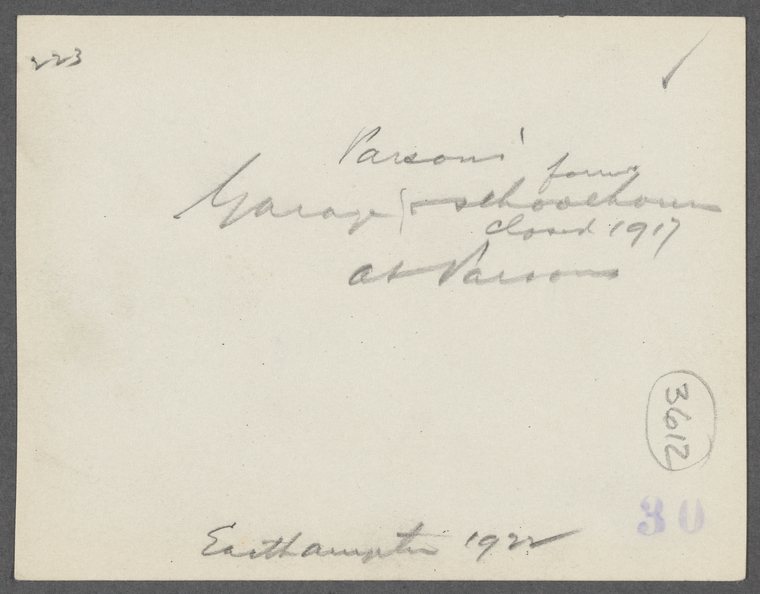 223
Parsons'
former
Garage & schoolhouse
closed 1917
at Parsons
3612
30
Easthampton 1922